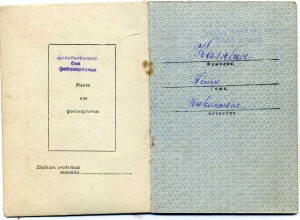 Действительно
без
фотокарточки
Место
для
фотокарточки
Подпись владельца
книжки
фамилия
Петр
имя
Николаевич
отчество